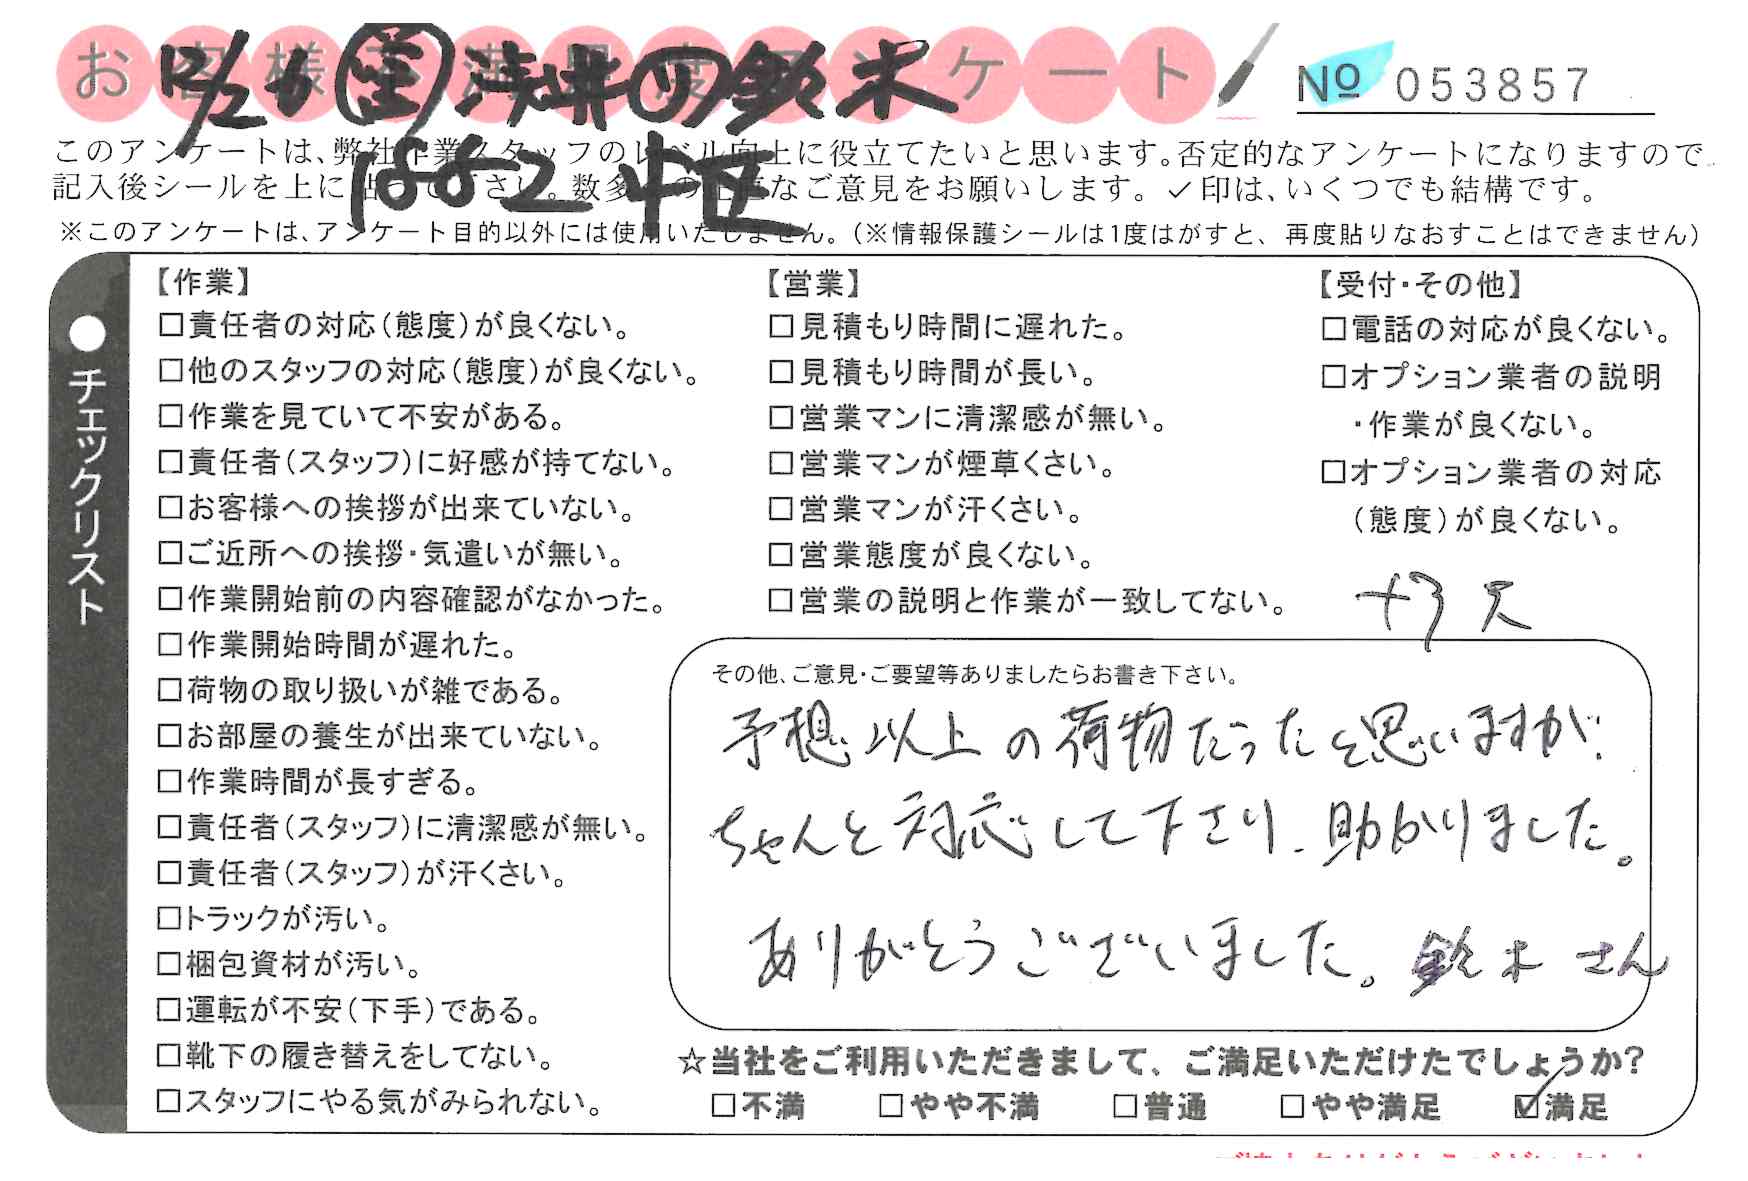 お客様不満足度アンケート
№ 053857
12/26 金 浅井の鈴木
このアンケートは、弊社作業スタッフのレベル向上に役立てたいと思います。否定的なアンケートになりますので
記入後シールを上に貼って下さい。数多くの正直なご意見をお願いします。✓印は、いくつでも結構です。
※このアンケートは、アンケート目的以外には使用いたしません。(※情報保護シールは1度はがすと、再度貼りなおすことはできません)
●チェックリスト
【作業】
□責任者の対応(態度)が良くない。
□他のスタッフの対応(態度)が良くない。
□作業を見ていて不安がある。
□責任者(スタッフ)に好感が持てない。
□お客様への挨拶が出来ていない。
□ご近所への挨拶・気遣いが無い。
□作業開始前の内容確認がなかった。
□作業開始時間が遅れた。
□荷物の取り扱いが雑である。
□お部屋の養生が出来ていない。
□作業時間が長すぎる。
□責任者(スタッフ)に清潔感が無い。
□責任者(スタッフ)が汗くさい。
□トラックが汚い。
□梱包資材が汚い。
□運転が不安(下手)である。
□靴下の履き替えをしてない。
□スタッフにやる気がみられない。
【営業】
□見積もり時間に遅れた。
□見積もり時間が長い。
□営業マンに清潔感が無い。
□営業マンが煙草くさい。
□営業マンが汗くさい。
□営業態度が良くない。
□営業の説明と作業が一致してない。
【受付・その他】
□電話の対応が良くない。
□オプション業者の説明
・作業が良くない。
□オプション業者の対応
(態度)が良くない。
その他、ご意見・ご要望等ありましたらお書き下さい。
予想以上の荷物だったと思いますが、
ちゃんと対応して下さり、助かりました。
ありがとうございました。鈴木さん
☆当社をご利用いただきまして、ご満足いただけたでしょうか?
□不満 □やや不満 □普通 □やや満足 ☑満足